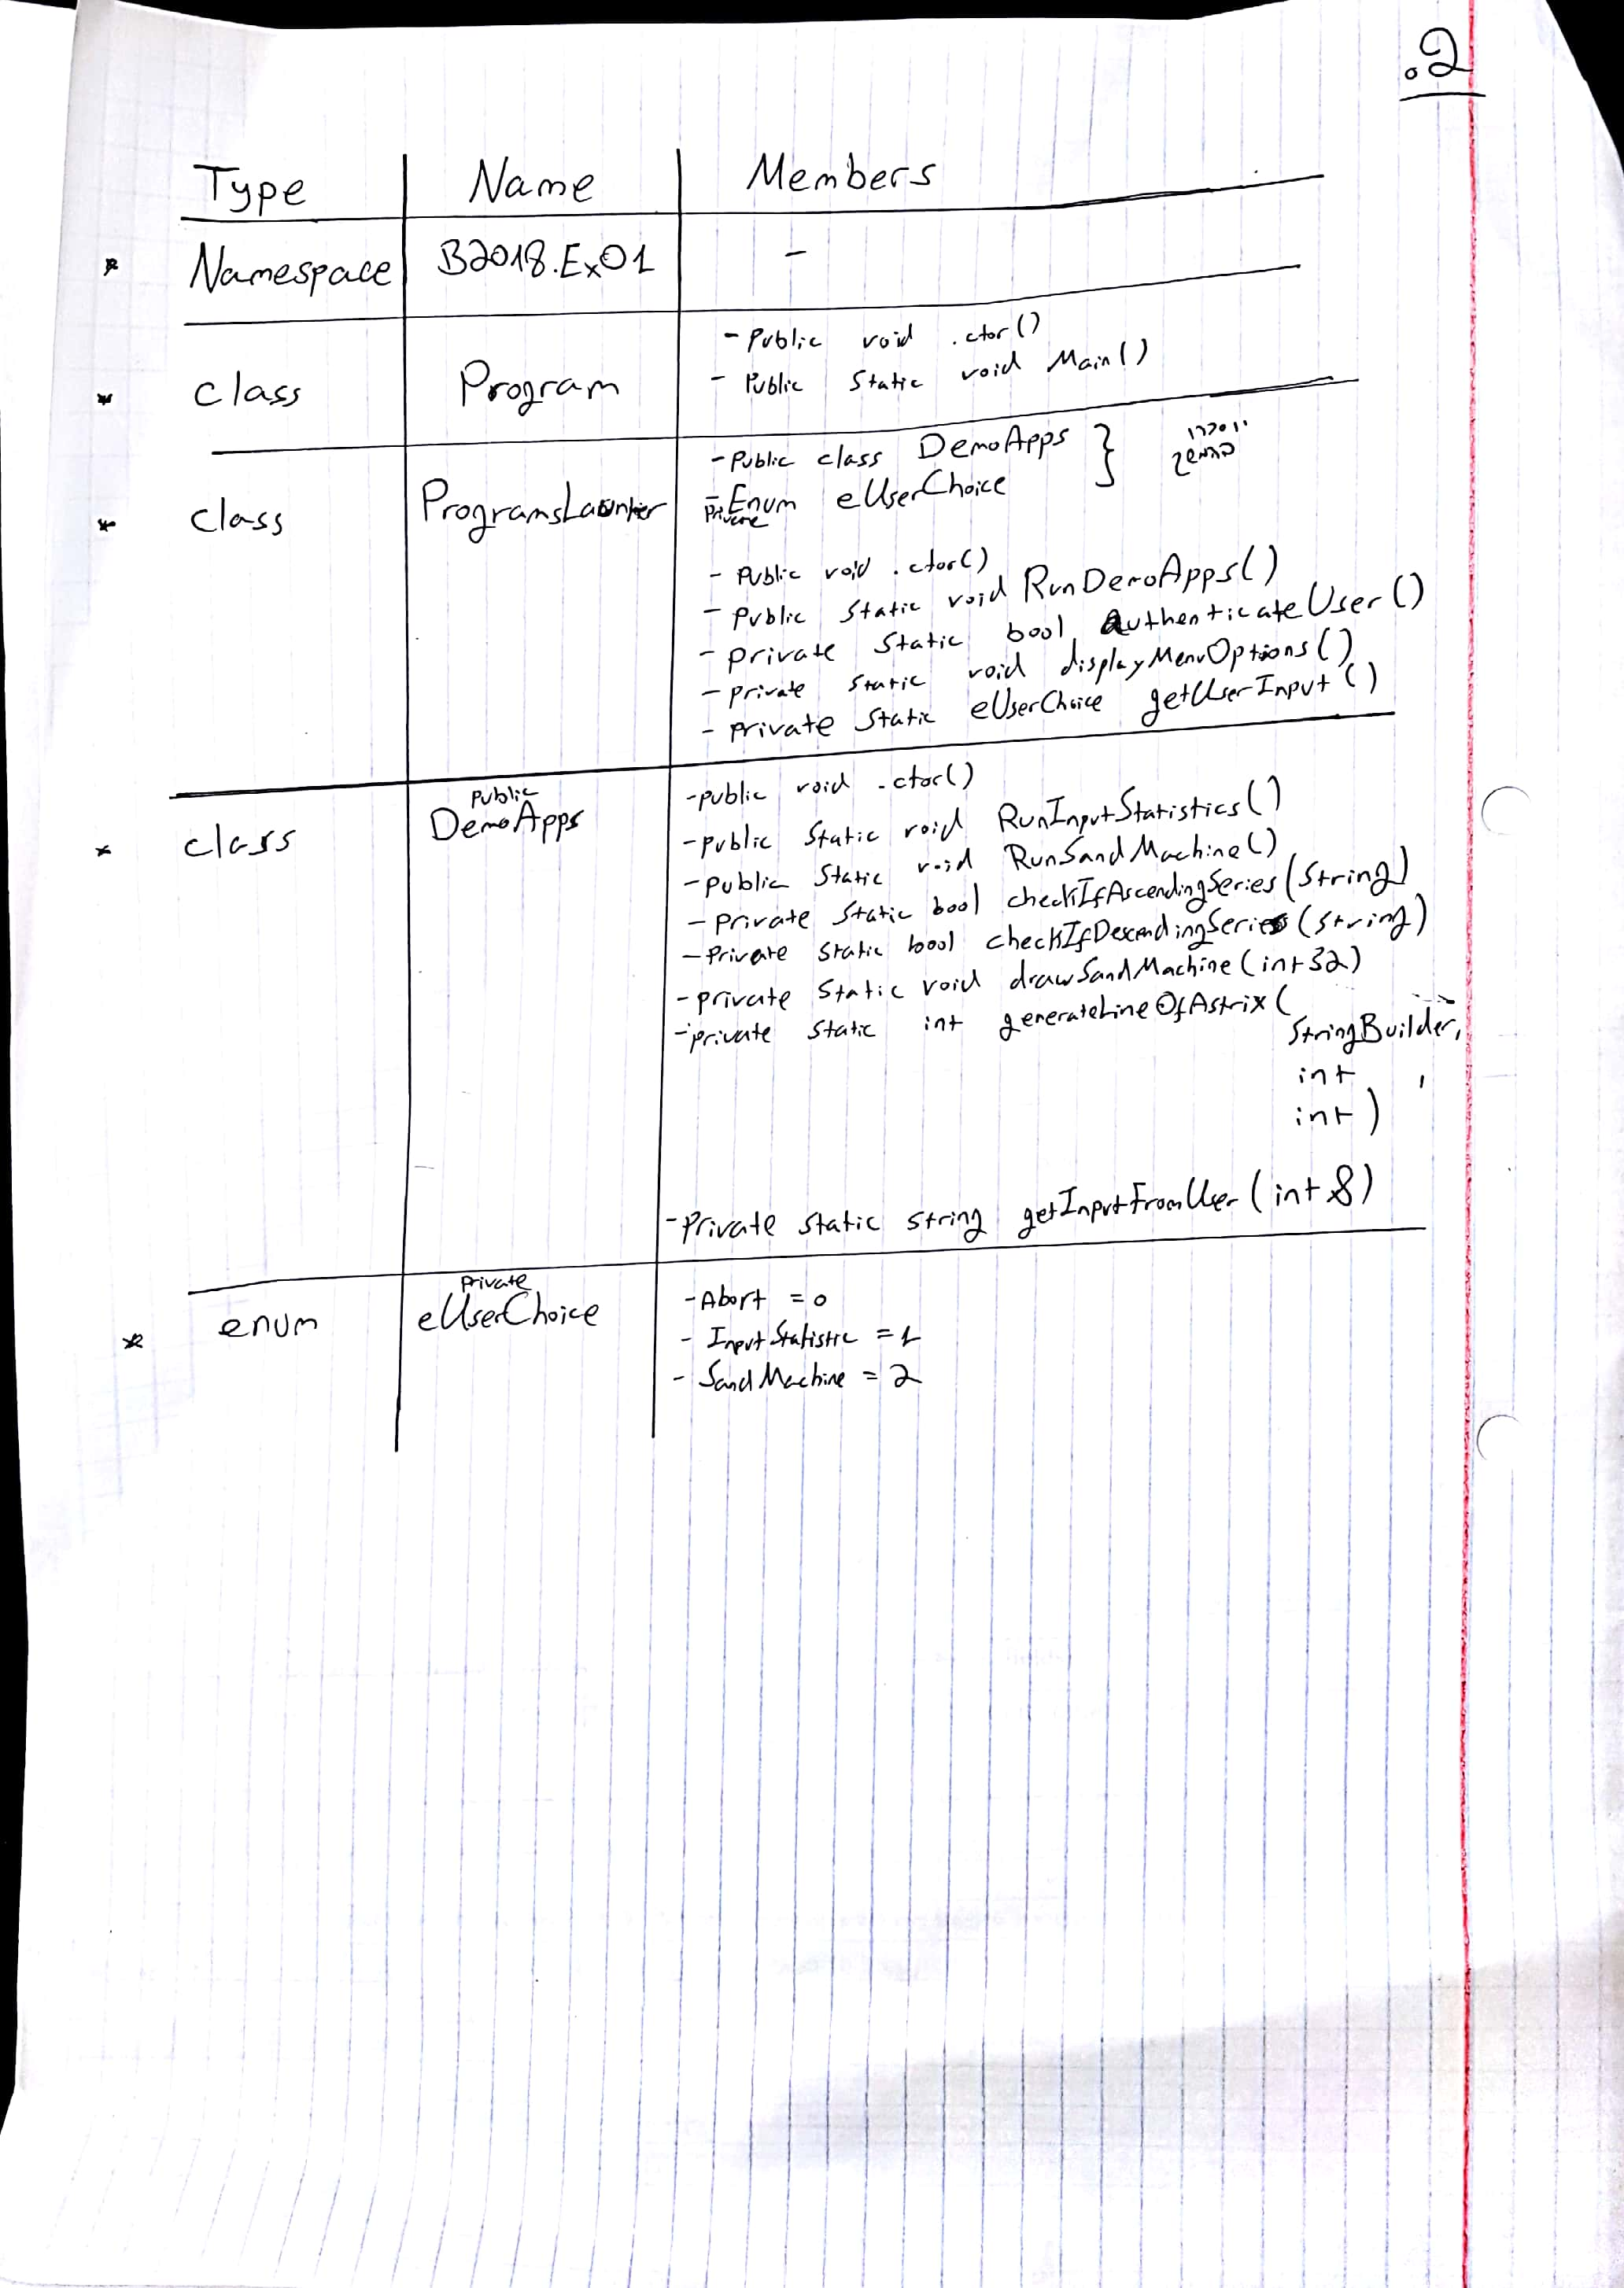 .2
Type Name Members
* Namespace B2018.Ex01 -
- Public void .ctor()
* class Program - Public Static void Main()
- Public class DemoApps } יוסברו
* class ProgramsLaunher - Private Enum eUserChoice בהמשך
- Public void .ctor()
- Public Static void RunDemoApps()
- private Static bool AuthenticateUser()
- private static void displayMenuOptions()
- private Static eUserChoice getUserInput()
* class Public DemoApps - public void .ctor()
- public Static void RunInputStatistics()
- public Static void RunSandMachine()
- Private Static bool checkIfAscendingSeries(String)
- Private static bool checkIfDescendingSeries(string)
- private Static void drawSandMachine(int32)
- private static int generateLineOfAstrix(
StringBuilder,
int ,
int)
- Private static string getInputFromUser(int 8)
* enum Private eUserChoice - Abort = 0
- InputStatistic = 1
- SandMachine = 2